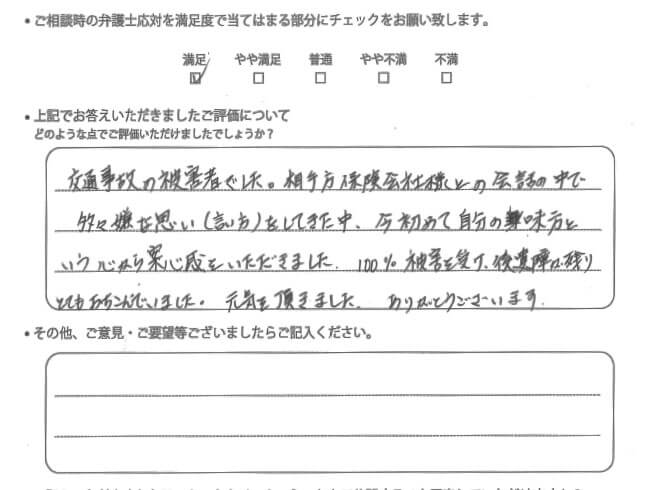 • ご相談時の弁護士応対を満足度で当てはまる部分にチェックをお願い致します。
満足 やや満足 普通 やや不満 不満
• 上記でお答えいただきましたご評価について
どのような点でご評価いただけましたでしょうか？
交通事故の被害者でした。相手方保険会社様との会話の中で
多々嫌な思い（言い方）をしてきた中、今初めて自分の味方と
いう心から安心感をいただきました。100%被害を受け、後遺障が残り
とてもおちこんでいました。元気を頂きました。ありがとうございます。
• その他、ご意見・ご要望等ございましたらご記入ください。